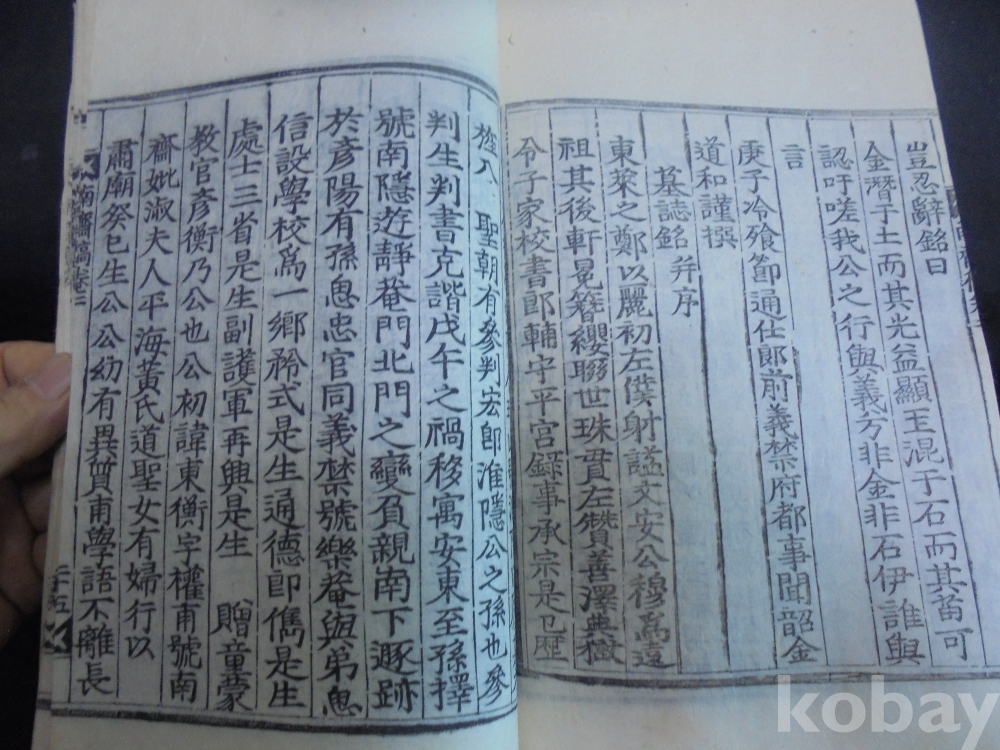 豈忍辭銘曰
金潛于土而其光益顯玉混于石而其苗可
認吁嗟我公之行與義方非金非石伊誰與
言
庚子冷飱節通仕郎前義禁府都事聞韶金
道和謹撰
墓誌銘并序
東萊之鄭以麗初左僕射諡文安公穆爲遠
祖其後軒冕簪纓聯世珠貫左贊善澤典
令子家校書郎輔守平宮錄事承宗是
聖朝有參判宏郎淮隱公之孫也參
判生判書克諧戊午之禍移寓安東至孫擇
號南隱遊靜菴門北門之變負親南下遯跡
於彦陽有孫思忠官同義禁號樂菴與弟思
信設學校爲一鄕矜式是生通德郎儁是生
處士三省是生副護軍再興是生 贈童蒙
教官彦衡乃公也公初諱東衡字權甫號南
齋妣淑夫人平海黃氏道聖女有婦行以
肅廟癸巳生公公幼有異質甫學語不離長
南齋稿卷二
二十五
kobay